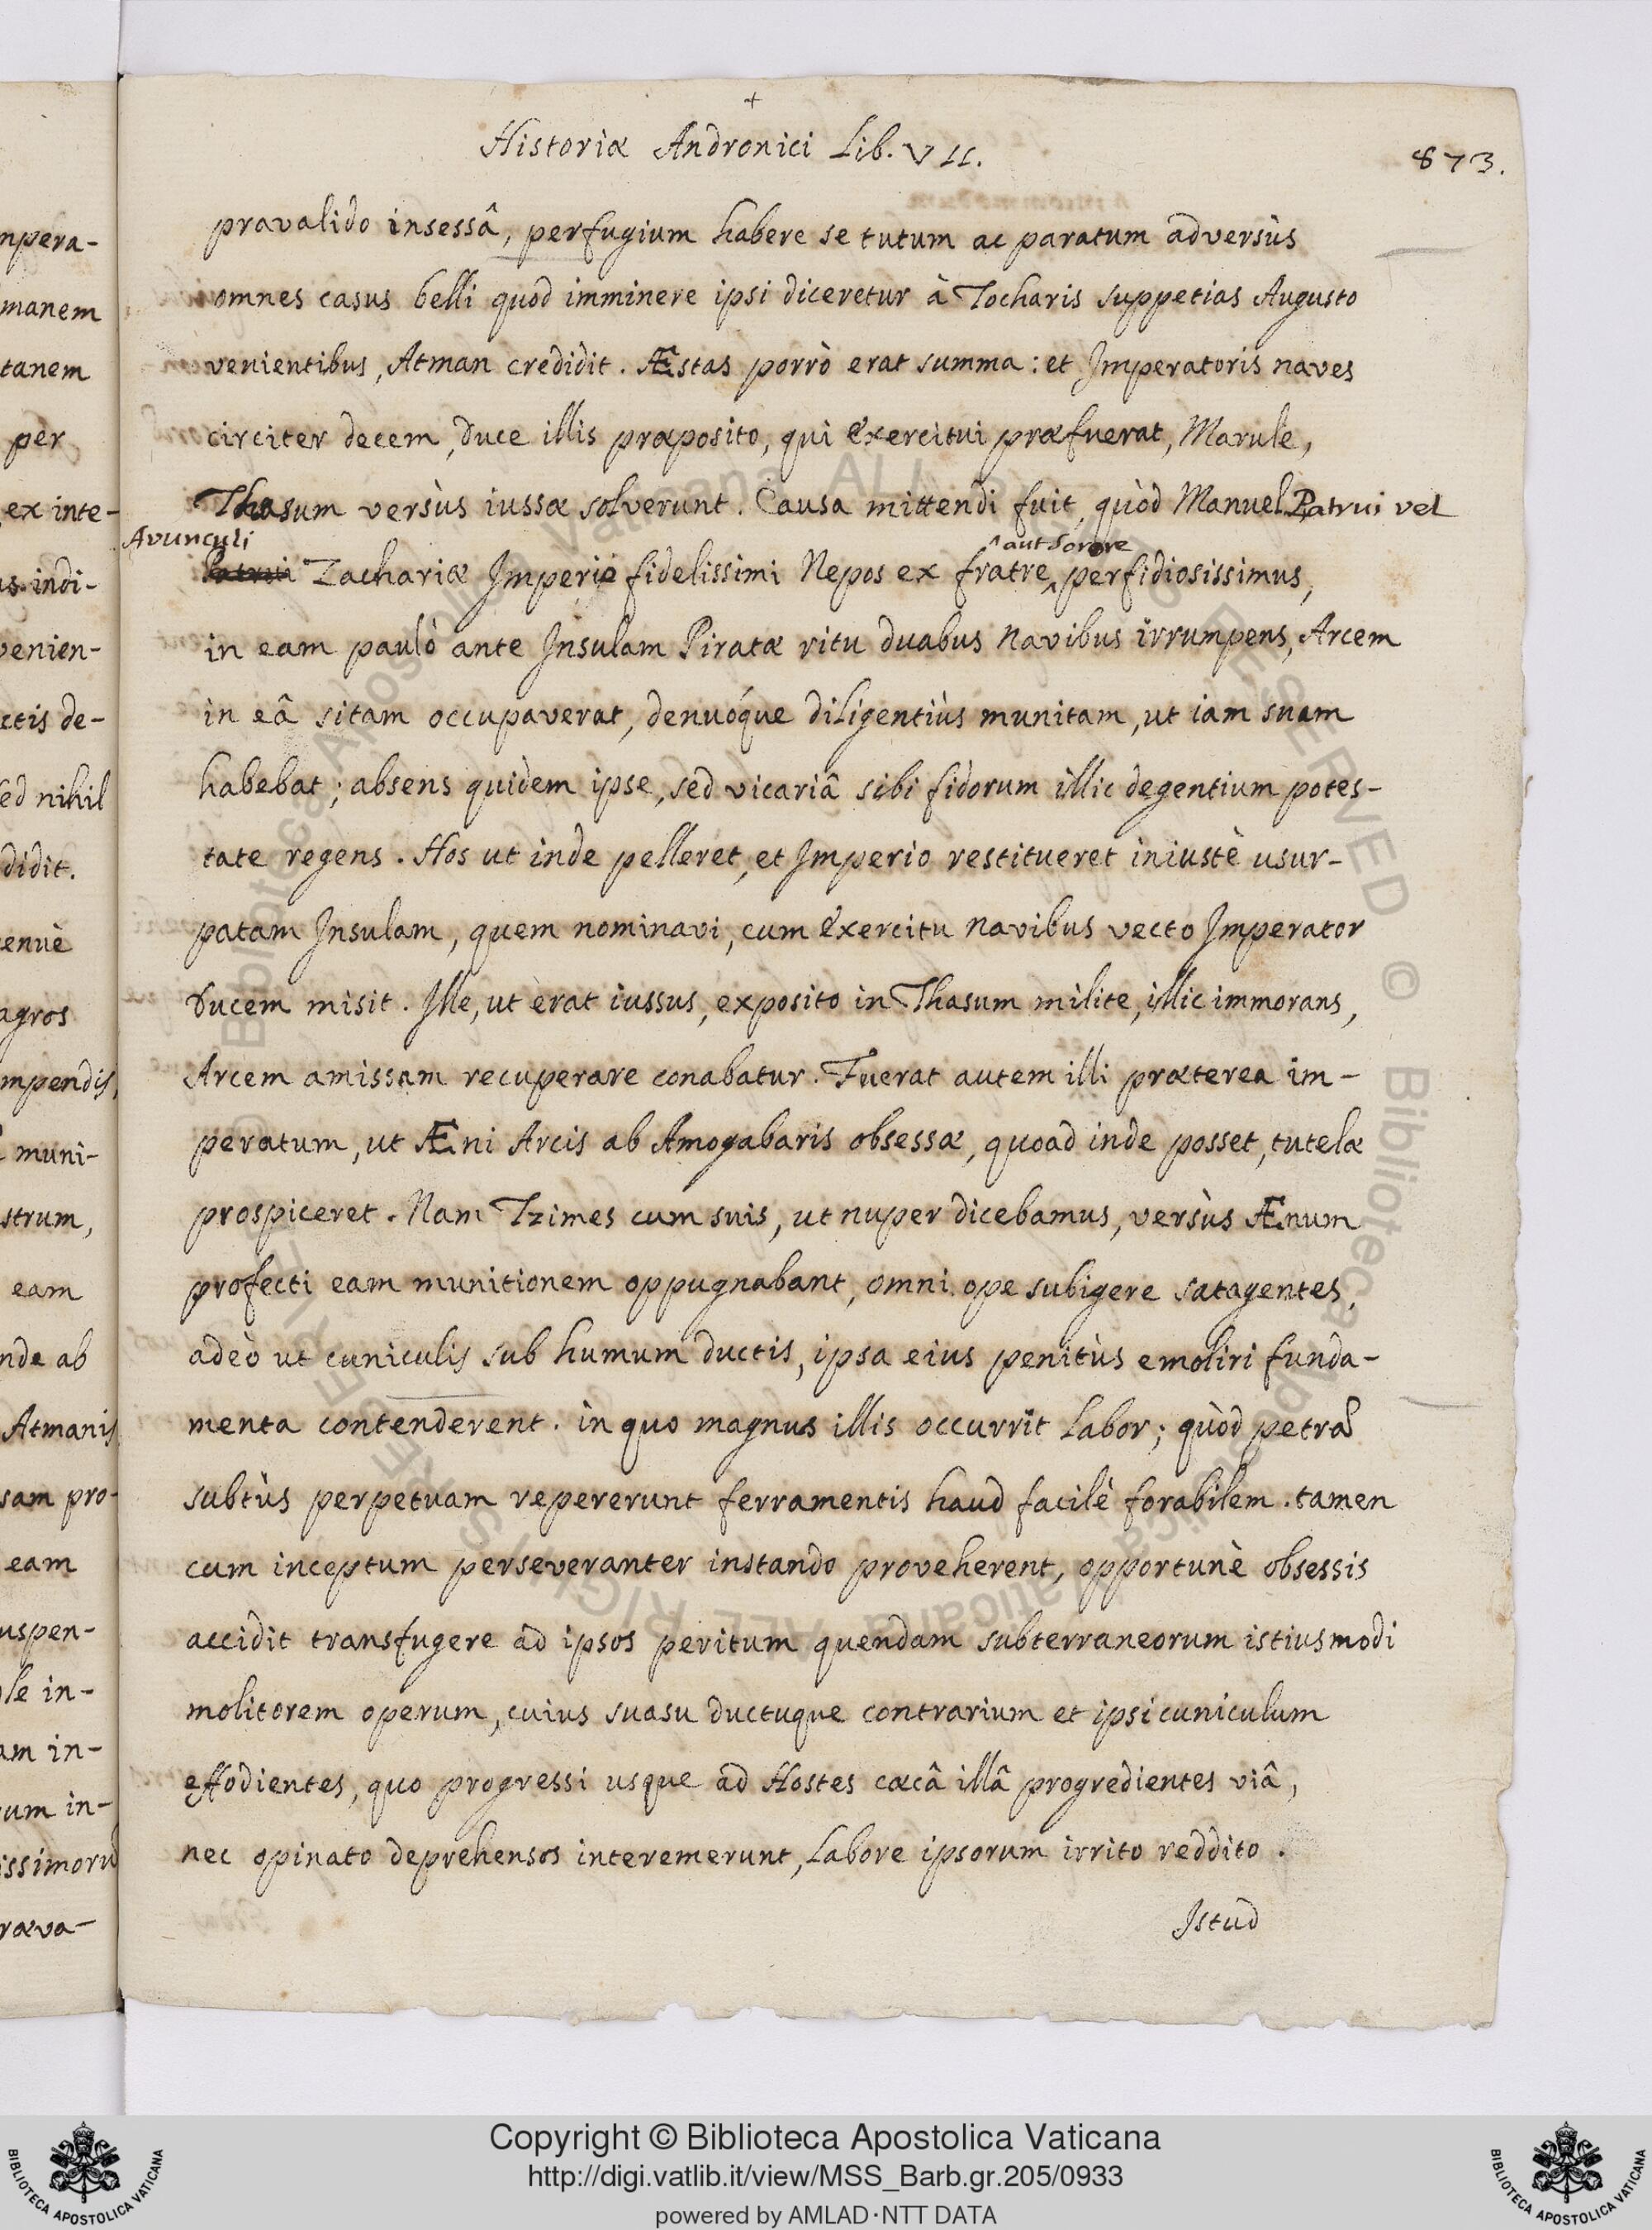 +
Historiæ Andronici Lib. VII.
873.
prævalido insessâ, perfugium habere se tutum ac paratum adversùs
omnes casus belli quod imminere ipsi diceretur à Tocharis suppetias Augusto
venientibus, Atman credidit. Æstas porrò erat summa: et Imperatoris naves
circiter decem, duce illis præposito, qui exercitui præfuerat, Marule,
Thasum versùs iussæ solverunt. Causa mittendi fuit, quòd Manuel Patrui vel
Avunculi ^aut Sorore
Patrui Zachariæ Imperii fidelissimi Nepos ex fratre^ perfidiosissimus,
in eam paulò ante Insulam Piratæ ritu duabus Navibus irrumpens, Arcem
in eâ sitam occupaverat, denuóque diligentiùs munitam, ut iam suam
habebat; absens quidem ipse, sed vicariâ sibi fidorum illic degentium potes-
tate regens. Hos ut inde pelleret, et Imperio restitueret iniustè usur-
patam Insulam, quem nominavi, cum Exercitu navibus vecto Imperator
Ducem misit. Ille, ut erat iussus, exposito in Thasum milite, illic immorans,
Arcem amissam recuperare conabatur. Fuerat autem illi præterea im-
peratum, ut Æni Arcis ab Amogabaris obsessæ, quoad inde posset, tutelæ
prospiceret. Nam Tzimes cum suis, ut nuper dicebamus, versùs Ænum
profecti eam munitionem oppugnabant, omni ope subigere satagentes,
adeò ut cuniculis sub humum ductis, ipsa eius penitùs emoliri funda-
menta contenderent. in quo magnus illis occurrit Labor; quòd petrã
subtùs perpetuam repererunt ferramentis haud facilè forabilem. tamen
cum inceptum perseveranter instando proveherent, opportunè obsessis
accidit transfugere ad ipsos peritum quendam subterraneorum istiusmodi
molitorem operum, cuius suasu ductuque contrarium et ipsi cuniculum
effodientes, quo progressi usque ad Hostes cæcâ illâ progredientes viâ,
nec opinato deprehensos interemerunt, Labore ipsorum irrito reddito.
Istud
npera-
manem
tanem
per
ex inte-
us indi-
venien-
ctis de-
sed nihil
didit.
enuè
agros
mpendis,
muni-
strum,
eam
nde ab
Atmanis
sam pro-
eam
uspen-
le in-
am in-
um in-
issimorũ
ræva-
Copyright © Biblioteca Apostolica Vaticana
http://digi.vatlib.it/view/MSS_Barb.gr.205/0933
powered by AMLAD·NTT DATA
BIBLIOTECA APOSTOLICA VATICANA
BIBLIOTECA APOSTOLICA VATICANA